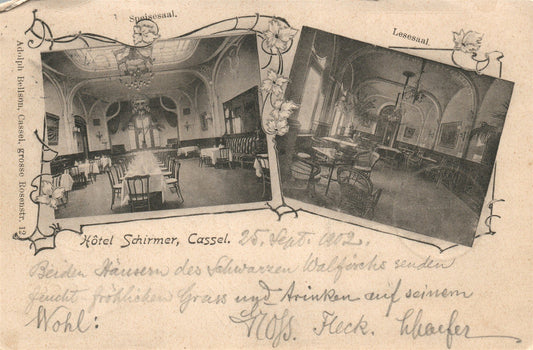 Speisesaal.
Lesesaal.
Adolph Bellson, Cassel, grosse Rosenstr. 12
Hôtel Schirmer, Cassel. 25. Sept. 1902.
Beiden Häusern des Schwarzen Walfischs senden
feucht fröhlichen Gruss und trinken auf seinem
Wohl:
Fleck. Schaefer